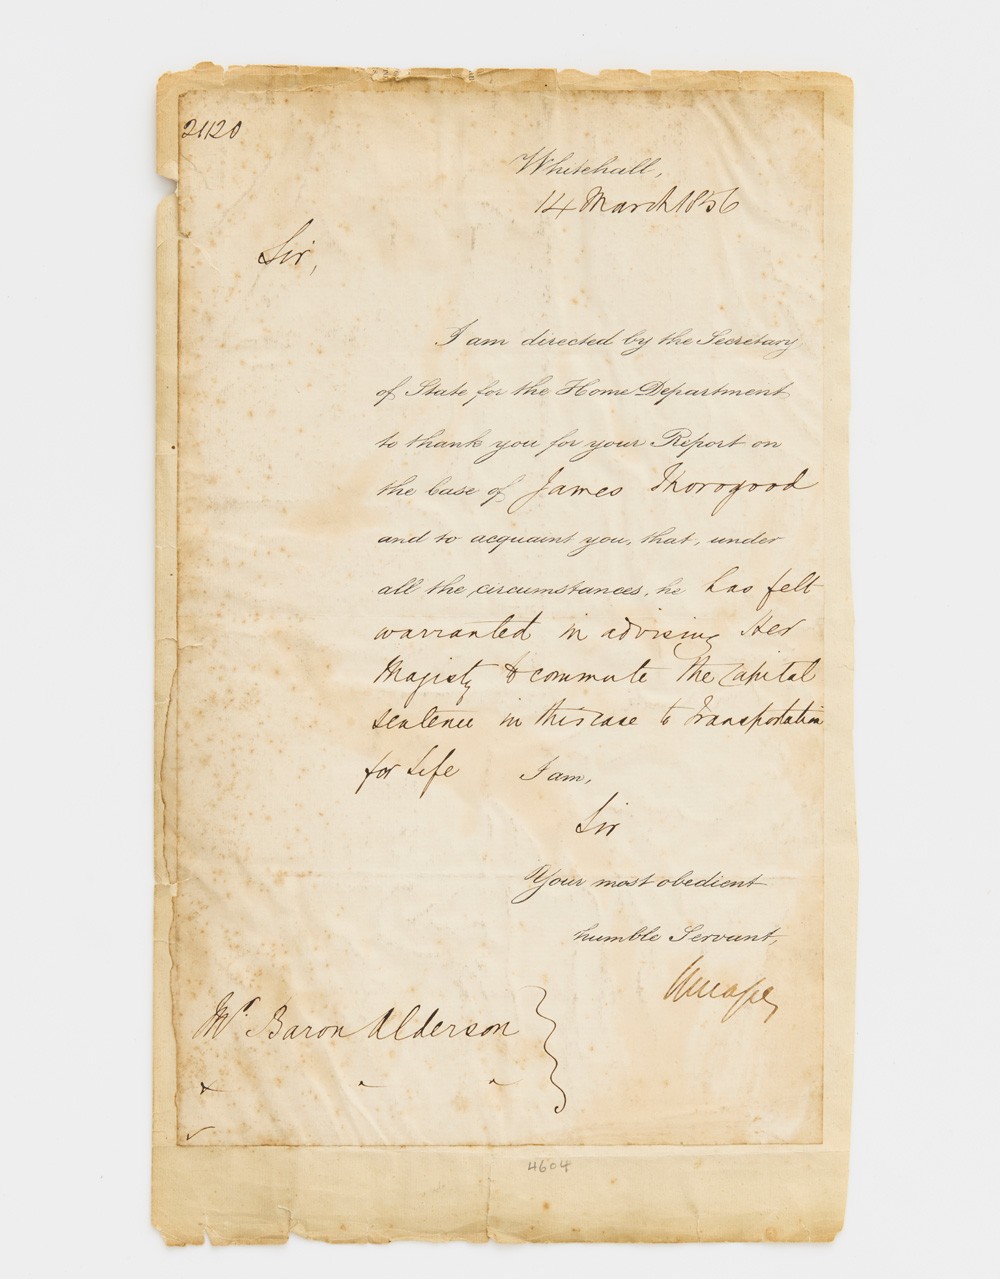 21120
Whitehall,
14 March 1856
Sir,
I am directed by the Secretary
of State for the Home Department
to thank you for your Report on
the Case of James Thorogood
and to acquaint you, that, under
all the circumstances, he has felt
warranted in advising Her
Majesty to commute the Capital
sentence in this case to Transportation
for Life I am,
Sir
Your most obedient
humble Servant,
Mr. Baron Alderson
4604